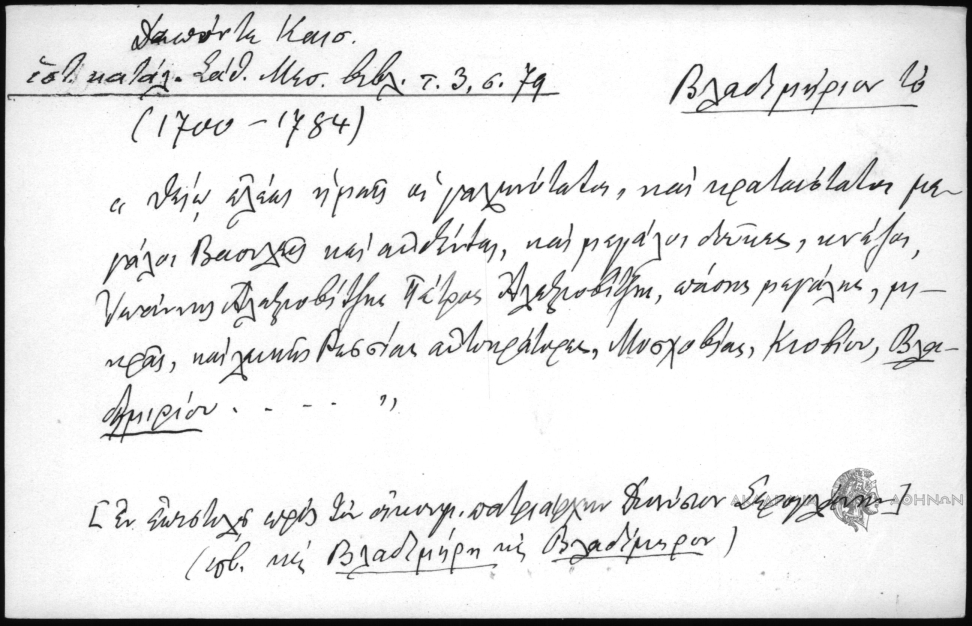 Δαπόντε Καισ.
ἱστ. κατάλ. Σάθ. Μεσ. Βιβλ. τ. 3, σ. 79
Βλαδιμήριον τὸ
(1700 – 1784)
" Θείῳ ἐλέει ἡμεῖς οἱ γαληνότατοι, καὶ κραταιότατοι με-
γάλοι Βασιλεῖς καὶ αὐθένται, καὶ μεγάλοι δοῦκες, κνέζοι,
Ἰωάννης Ἀλεξιοβίτζης Πέτρος Ἀλεξιοβίτζης, πάσης μεγάλης, μι-
κρᾶς, καὶ λευκῆς Ρωσσίας αὐτοκράτορες, Μοσχοβίας, Κιοβίου, Βλα-
διμιρίου . . . . "
[Ἐν ἐπιστολῇ πρὸς τὸν οἰκουμ. πατριάρχην Διονύσιον]
(πβ. κὲ Βλαδιμήρη κὲ Βλαδίμερον)
ΑΘΗΝΩΝ